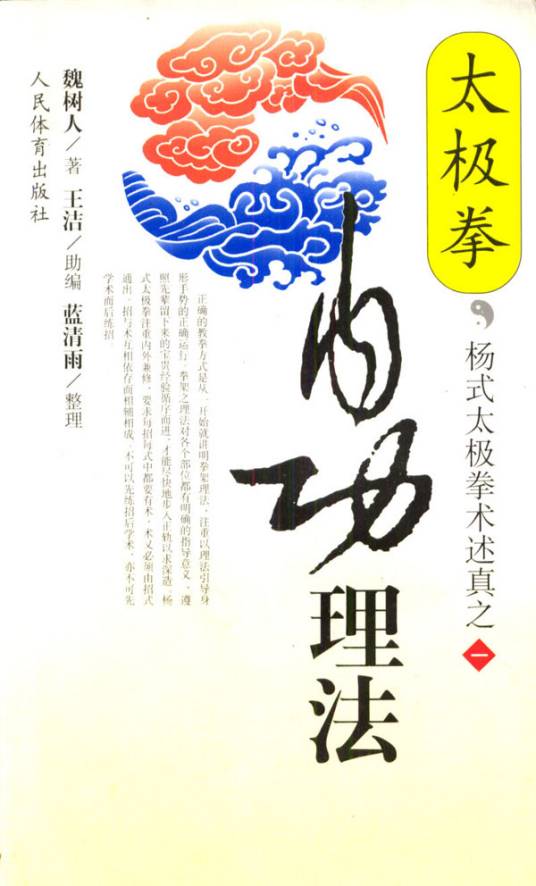 太极拳
杨式太极拳术述真之一
内功
理法
正确的教拳方式是从一开始就讲明拳架理法，注重以理法引导身
形手势的正确运行。拳架之理法对各个部位都有明确的指导意义，遵
照先辈留下来的宝贵经验循序而进，才能尽快地步入正轨以求深造。杨
式太极拳注重内外兼修，要求每招每式中都要有术，术又必须由招式
通出，招与术互相依存而相辅相成，不可以先练招后学术，亦不可先
学术而后练招。
魏树人/著 王洁/助编 蓝清雨/整理
人民体育出版社